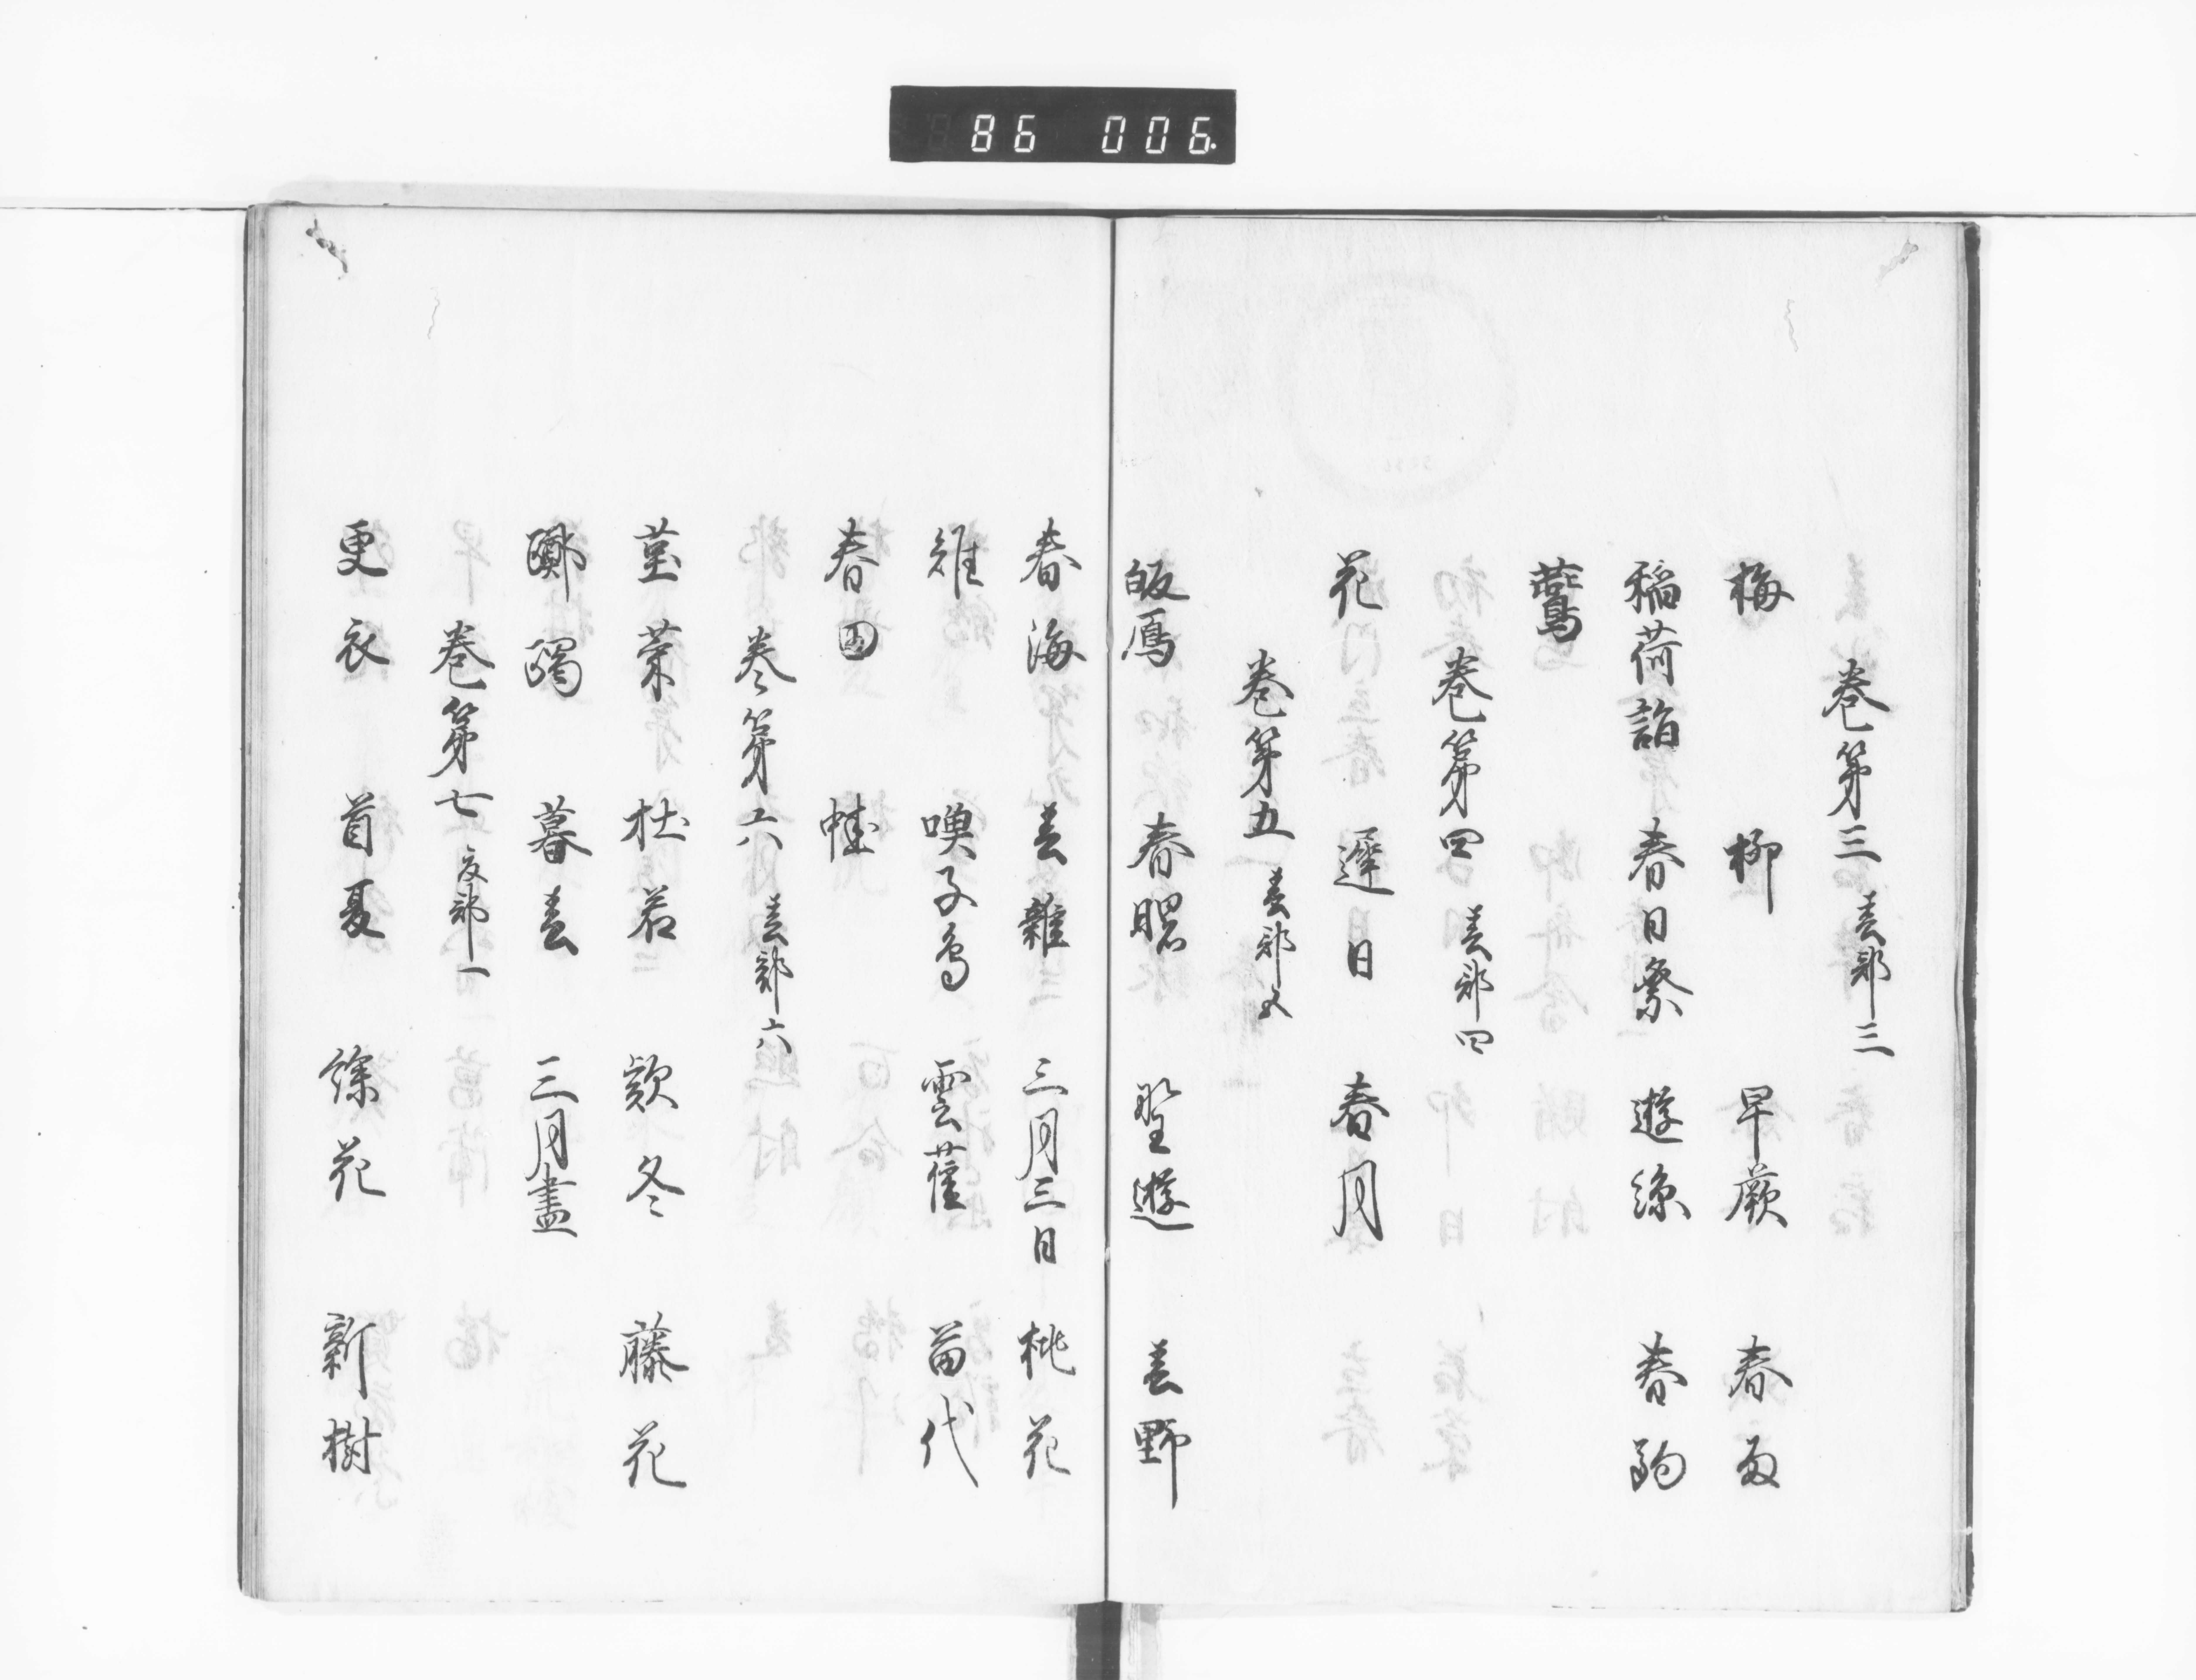 86 006
巻第三 春部三
梅 柳 早蕨 春雨
稲荷詣 春日祭 遊絲 春駒
鷰
巻第四 春部四
花 遅日 春月
巻第五 春部五
皈鴈 春曙 野遊 春野
春海 春雑 三月三日 桃花
雉 喚子鳥 雲雀 苗代
春田 蛙
巻第六 春部六
菫菜 杜若 款冬 藤花
躑躅 暮春 三月盡
巻第七 夏部一
更衣 首夏 餘花 新樹